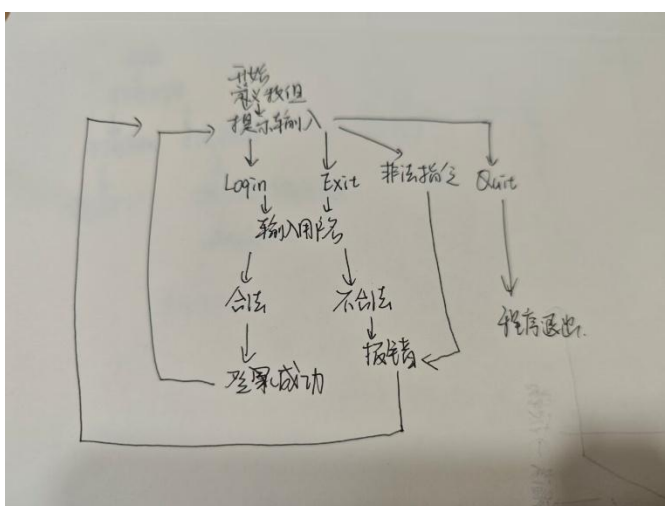 开始
定义数组
提示输入
Login Exit 非法指令 Quit
输入用户名
合法 不合法 程序退出.
登录成功 报错